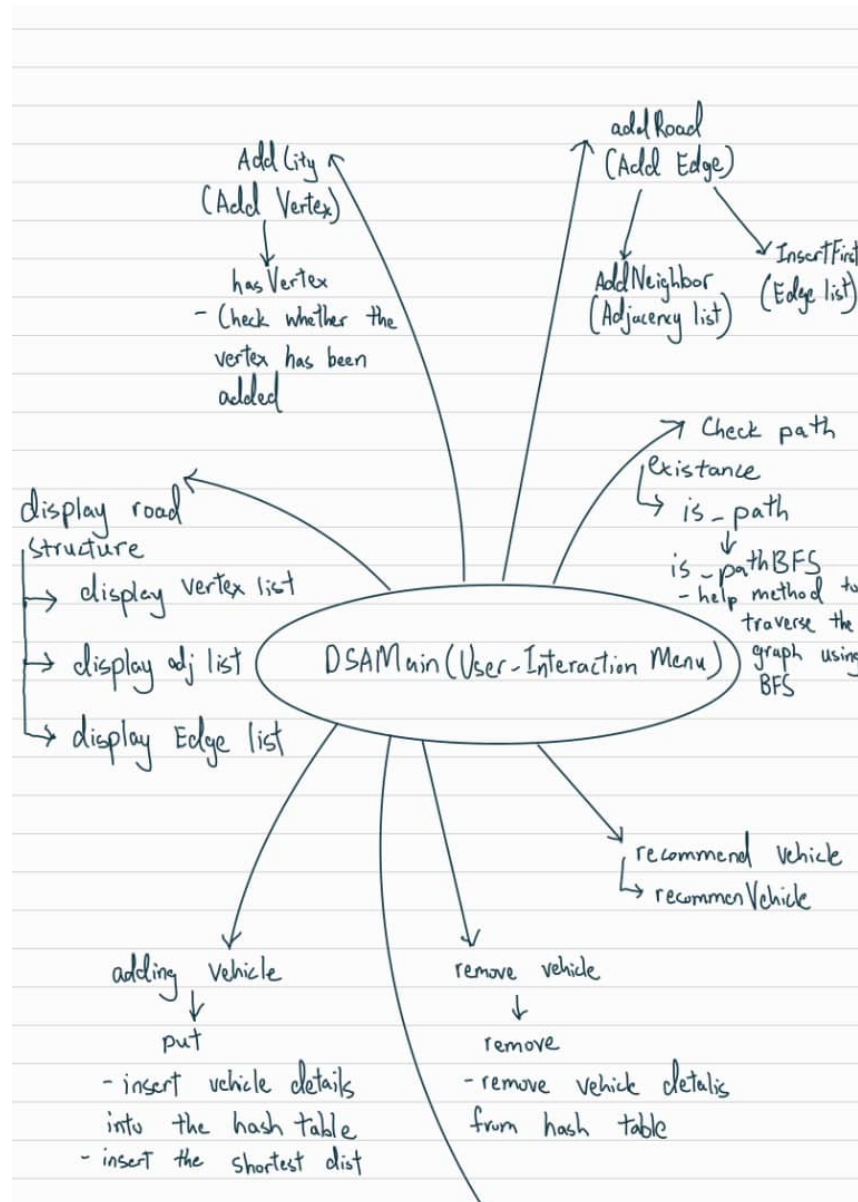 Add City
(Add Vertex)
hasVertex
- Check whether the
vertex has been
added
addRoad
(Add Edge)
AddNeighbor
(Adjacency list)
InsertFirst
(Edge list)
Check path
existance
is_path
is_pathBFS
- help method to
traverse the
graph using
BFS
display road
structure
display vertex list
display adj list
display Edge list
DSAMain (User-Interaction Menu)
recommend vehicle
recommenVehicle
adding vehicle
put
- insert vehicle details
into the hash table
- insert the shortest dist
remove vehicle
remove
- remove vehicle detalis
from hash table